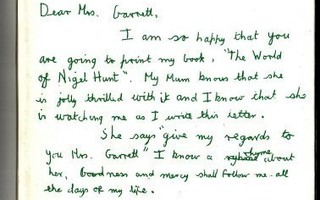 Dear Mrs. Garrett,
I am so happy that you
are going to print my book, "The World
of Nigel Hunt". My Mum knows that she
is jolly thrilled with it and I know that she
is watching me as I write this letter.
She says "give my regards to
you Mrs. Garrett" I know a rhyme about
her, Goodness and mercy shall follow me all
the days of my life.